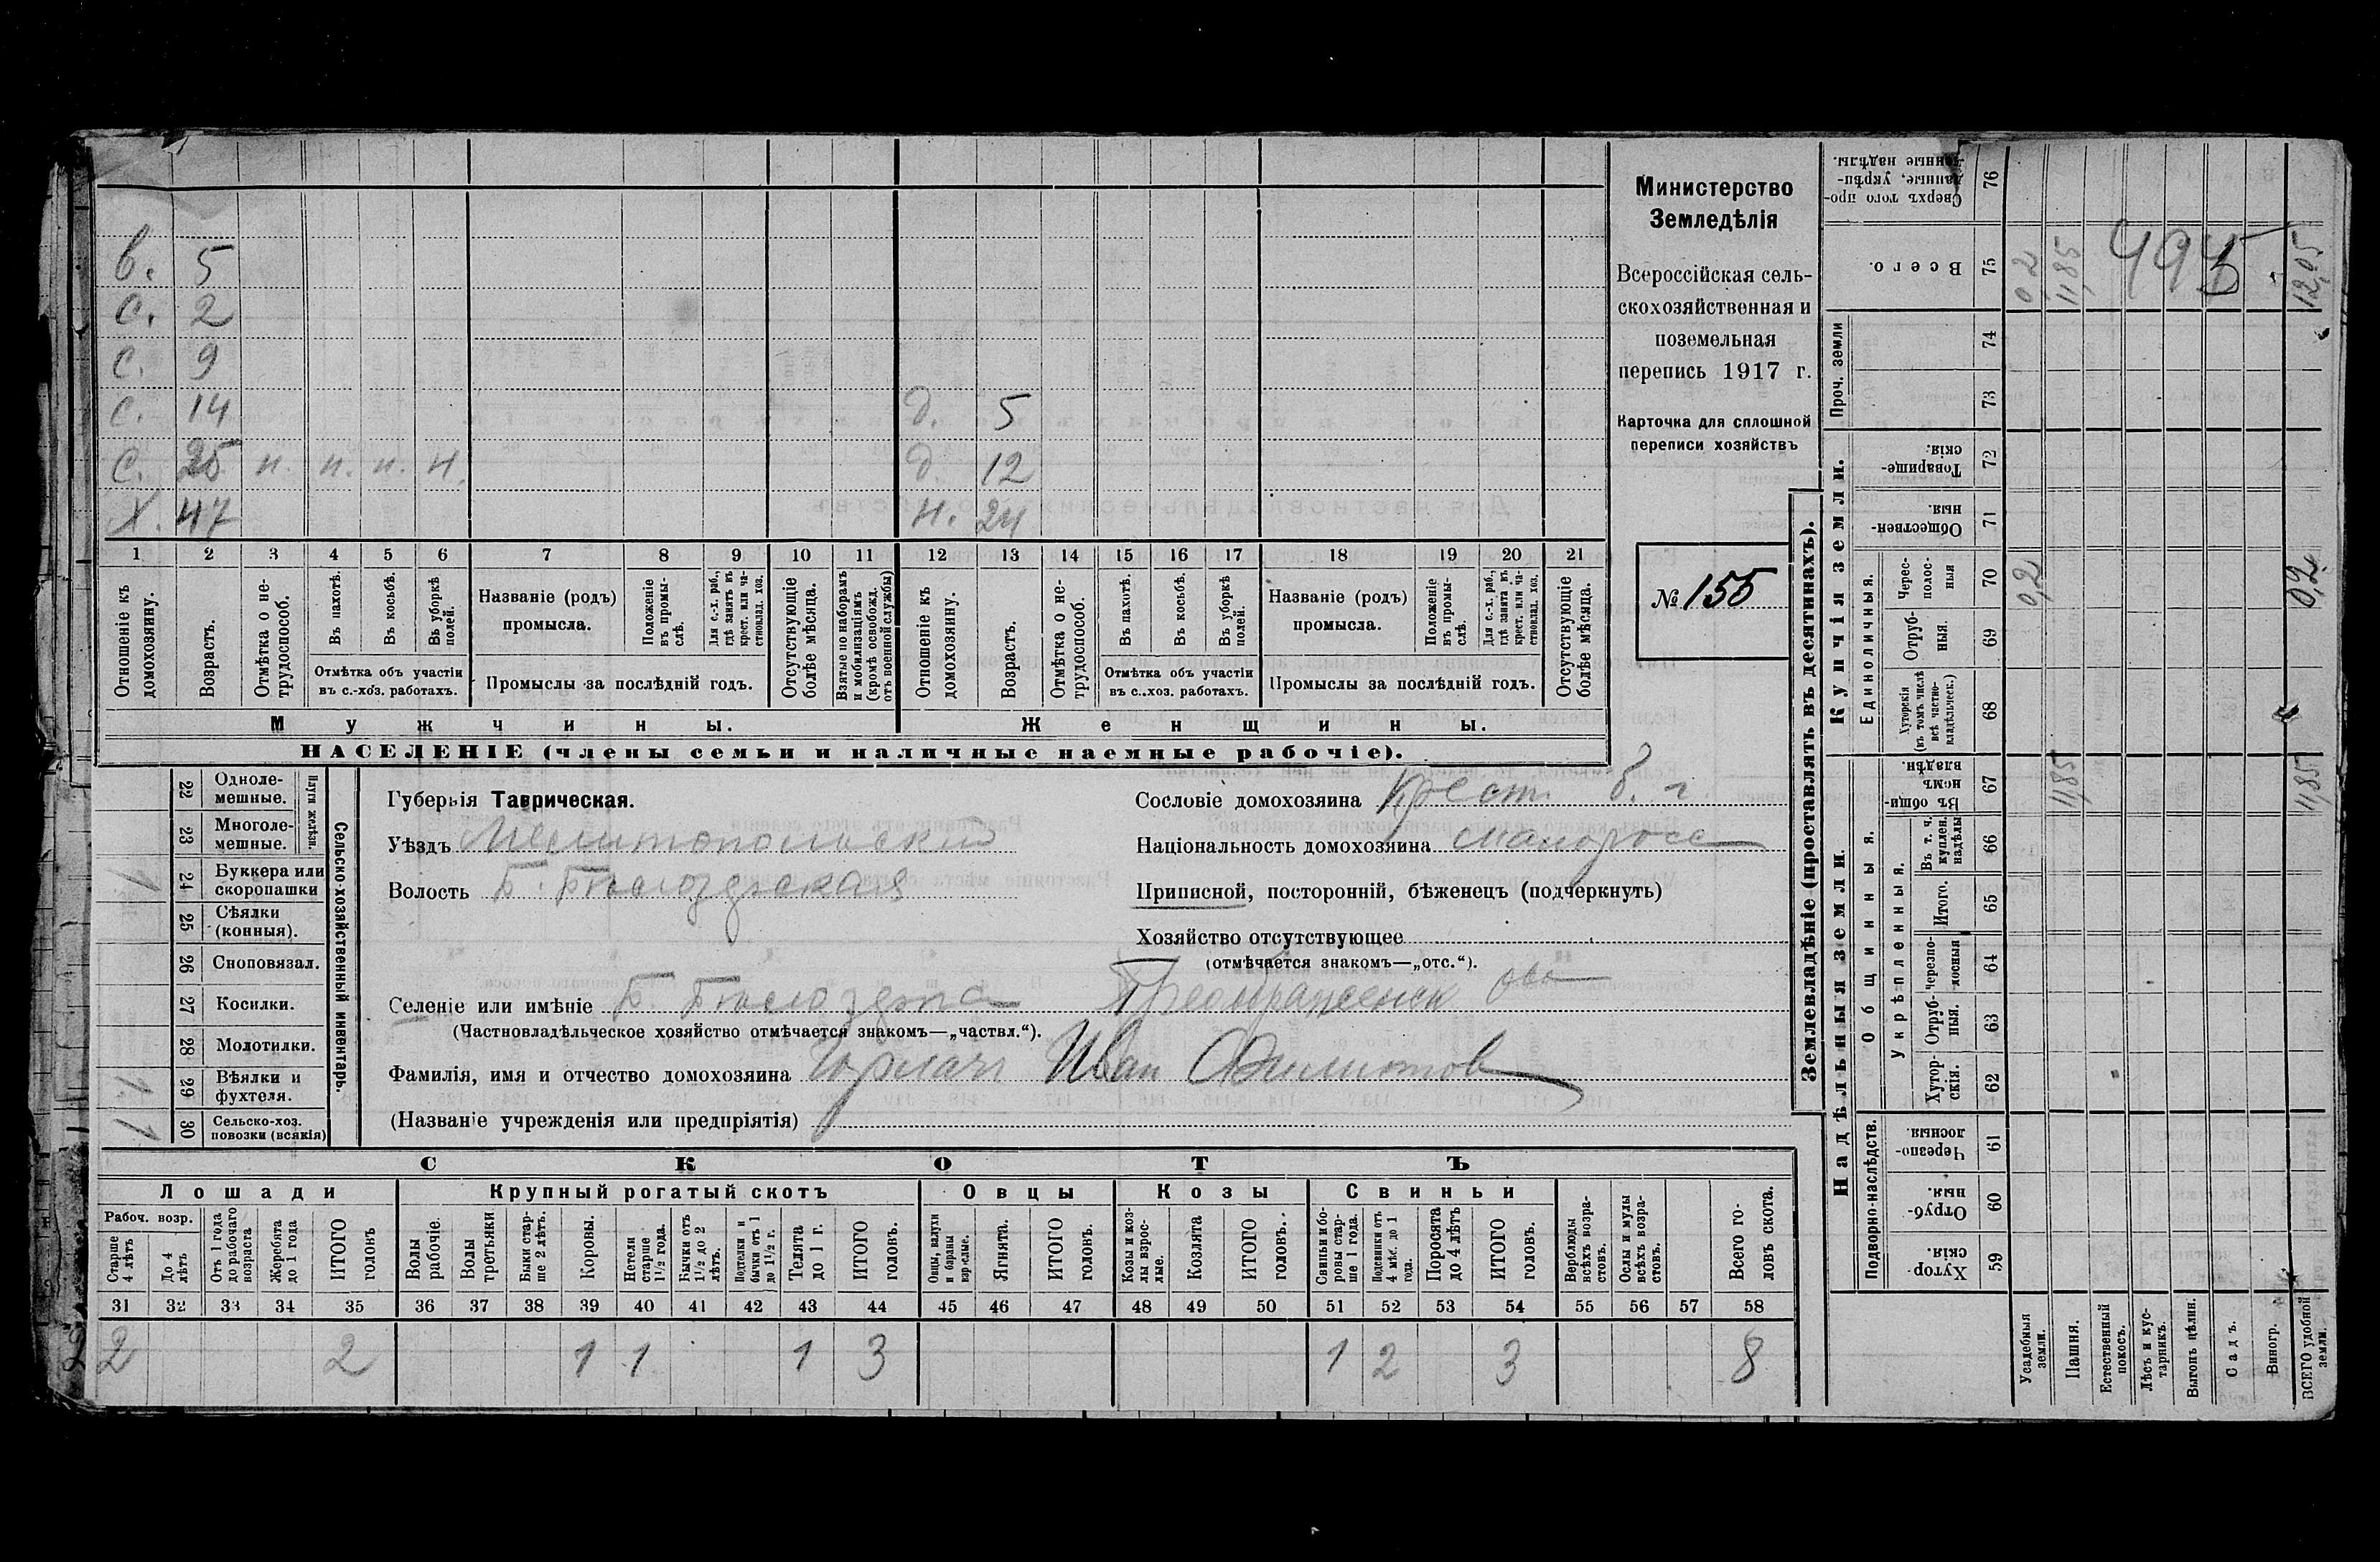 в. 5
с. 2
с. 9
с. 14 д. 5
с. 25 н. н. н. н. д. 12
Х. 47 н. 24
1 2 3 4 5 6 7 8 9 10 11 12 13 14 15 16 17 18 19 20 21
Отношеніе къ домохозяину.
Возрастъ.
Отмѣтка о нетрудоспособ.
Въ пахотѣ.
Въ косьбѣ.
Въ уборкѣ полей.
Отмѣтка объ участіи
въ с.-хоз. работахъ.
Названіе (родъ)
промысла.
Положеніе въ промыслѣ.
Для с.-х. раб., гдѣ занятъ въ крест. или частновлад. хоз.
Промыслы за послѣдній годъ.
Отсутствующіе болѣе мѣсяца.
Взятые по наборамъ и мобилизаціямъ (кромѣ освобожд. отъ военной службы)
Отношеніе къ домохозяину.
Возрастъ.
Отмѣтка о нетрудоспособ.
Въ пахотѣ.
Въ косьбѣ.
Въ уборкѣ полей.
Отмѣтка объ участіи
въ с.-хоз. работахъ.
Названіе (родъ)
промысла.
Положеніе въ промыслѣ.
Для с.-х. раб., гдѣ занята въ крест. или частновлад. хоз.
Промыслы за послѣдній годъ.
Отсутствующіе болѣе мѣсяца.
Мужчины. Женщины.
НАСЕЛЕНІЕ (члены семьи и наличные наемные рабочіе).
Министерство
Земледѣлія
Всероссійская сель-
скохозяйственная и
поземельная
перепись 1917 г.
Карточка для сплошной
переписи хозяйствъ
№ 155
22 Одноле-
мешные.
23 Многоле-
мешные.
Плуги желѣзн.
24 Буккера или
скоропашки 1
25 Сѣялки
(конныя).
26 Сноповязал.
27 Косилки.
28 Молотилки.
29 Вѣялки и
фухтеля. 1
30 Сельско-хоз.
повозки (всякія) 1
Сельско-хозяйственный инвентарь.
Губернія Таврическая.
Уѣздъ Мелитопольский
Волость Б. Белозерская
Селеніе или имѣніе Б. Белозерка Преображенск ова
(Частновладѣльческое хозяйство отмѣчается знакомъ—„частвл.“).
Фамилія, имя и отчество домохозяина Иван
(Названіе учрежденія или предпріятія)
Сословіе домохозяина Крест. б. г
Національность домохозяина малоросс
Приписной, посторонній, бѣженецъ (подчеркнуть)
Хозяйство отсутствующее
(отмѣчается знакомъ—„отс.“).
СКОТЪ
Лошади Крупный рогатый скотъ Овцы Козы Свиньи
Рабоч. возр.
Старше 4 лѣтъ
До 4 лѣтъ
Отъ 1 года до рабочаго возраста
Жеребята до 1 года
ИТОГО головъ
Волы рабочіе.
Волы третьяки
Быки старше 2 лѣтъ.
Коровы.
Нетели старше 1 1/2 года.
Бычки отъ 1 1/2 до 2 лѣтъ.
Подтелки и бычки отъ 1 до 1 1/2 г.
Телята до 1 г.
ИТОГО головъ.
Овцы, валухи и бараны взрослые.
Ягнята.
ИТОГО головъ.
Козы и козлы взрослые.
Козлята
ИТОГО головъ.
Свиньи и боровы старше 1 года.
Подсвинки отъ 4 мѣс. до 1 года.
Поросята до 4 лѣтъ
ИТОГО головъ.
Верблюды всѣхъ возрастовъ.
Ослы и мулы всѣхъ возрастовъ.
Всего головъ скота.
31 32 33 34 35 36 37 38 39 40 41 42 43 44 45 46 47 48 49 50 51 52 53 54 55 56 57 58
2 2 2 1 1 1 3 1 2 3 8
Землевладѣніе (проставлять въ десятинахъ).
Сверхъ того проданные, укрѣпленные надѣлы. 76
Всего. 75 0,2 11,85 495 12,05
Проч. земли 74 73
Купчія земли.
Товарищескія. 72
Общественныя. 71
Единоличныя.
Чересполосныя 70 0,2 0,2
Отрубныя. 69
Хуторскія (въ томъ числѣ всѣ частновладѣльческ.) 68
Надѣльныя земли.
Общинныя.
Въ общинномъ владѣн. 67 11,85 11,85
Укрѣпленныя.
Въ т. ч. куплен. надѣлы 66
Итого. 65
Черезполосныя 64
Отрубныя. 63
Хуторскія. 62
Подворно-наслѣдств.
Черезполосныя. 61
Отрубныя. 60
Хуторскія. 59
Усадебныя земли.
Пашня.
Естественный покосъ.
Лѣсъ и кустарникъ.
Выгонъ цѣлин.
Садъ.
Виногр.
ВСЕГО удобной земли.